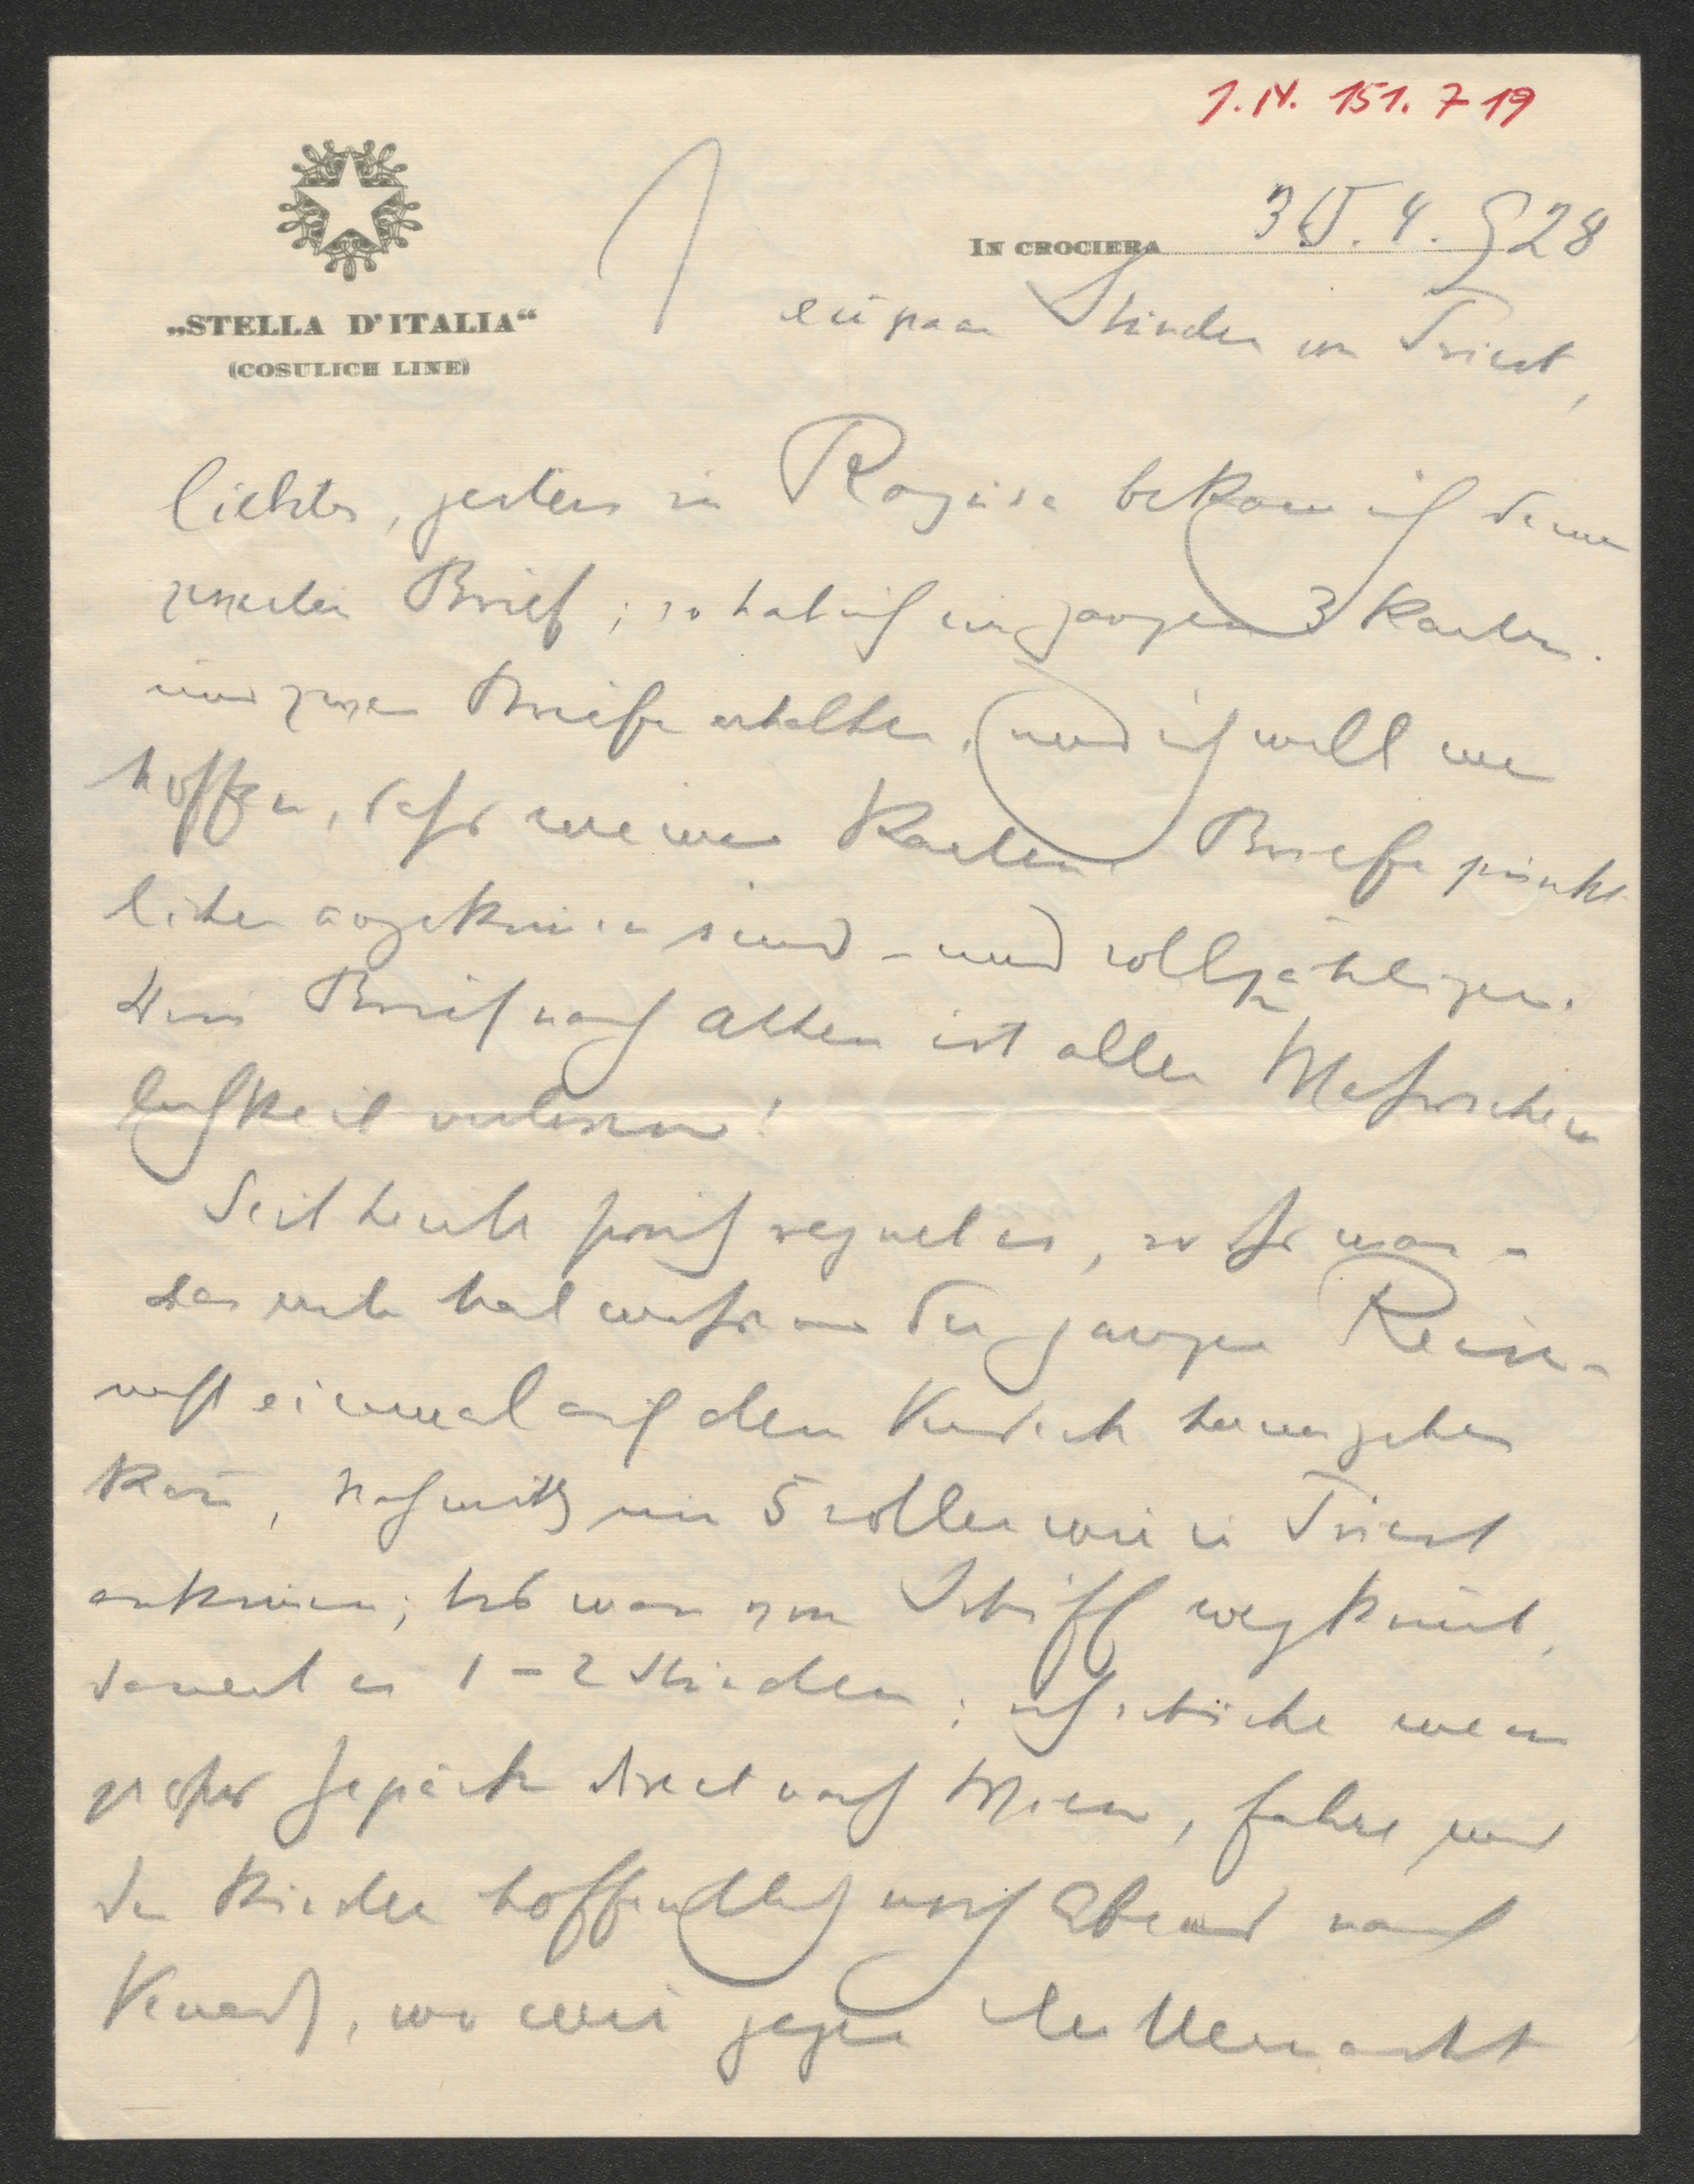 I.N. 151.719
„STELLA D'ITALIA“
(COSULICH LINE)
IN CROCIERA 30. 4. 928
ein paar Stunden von Triest,
liebster, gestern in Ragusa bekam ich deinen
zweiten Brief; so hab ich im ganzen 3 Karten
und zwei Briefe erhalten, und ich will nur
hoffen, dass meine Karten Briefe pünkt
licher angekommen sind – und vollzähliger.
Dein Brief nach Athen ist aller Wahrschein
lichkeit verloren!
Seit heute früh regnet es, so dass man –
das erste Mal während der ganzen Reise –
nicht einmal auf dem Verdeck herumgehen
kann, Nachmittg um 5 sollen wir in Triest
ankommen; bis man vom Schiff wegkommt,
dauert es 1 – 2 Stunden; ich schicke mein
großes Gepäck direct nach Wien, fahre mit
den Kindern hoffentlich noch Abend nach
Venedig, wo wir gegen Mitternacht